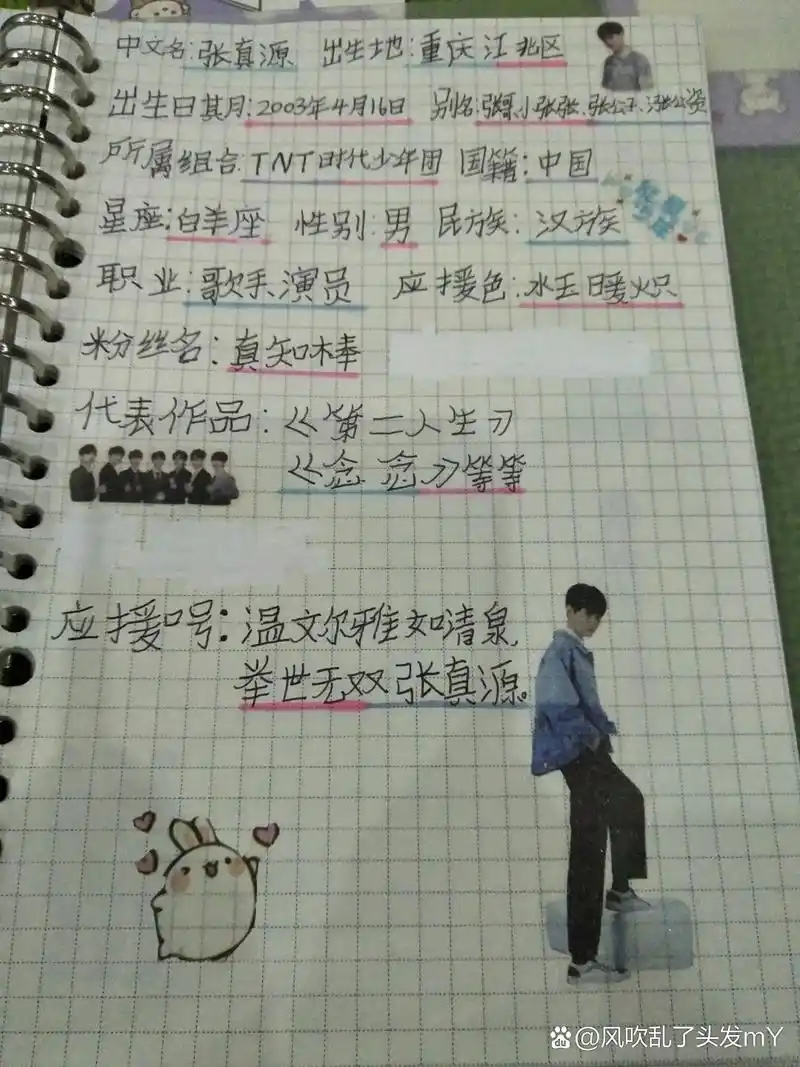 中文名:张真源 出生地:重庆江北区
出生日其月:2003年4月16日 别名:张哥、小张张、张公子、涨公资
所属组合:TNT时代少年团 国籍:中国
星座:白羊座 性别:男 民族:汉族
职业:歌手、演员 应援色:水玉暖炽
粉丝名:真知味棒
代表作品:《第二人生》
《念念》等等
应援口号:温文尔雅如清泉,
举世无双张真源。
@风吹乱了头发mY